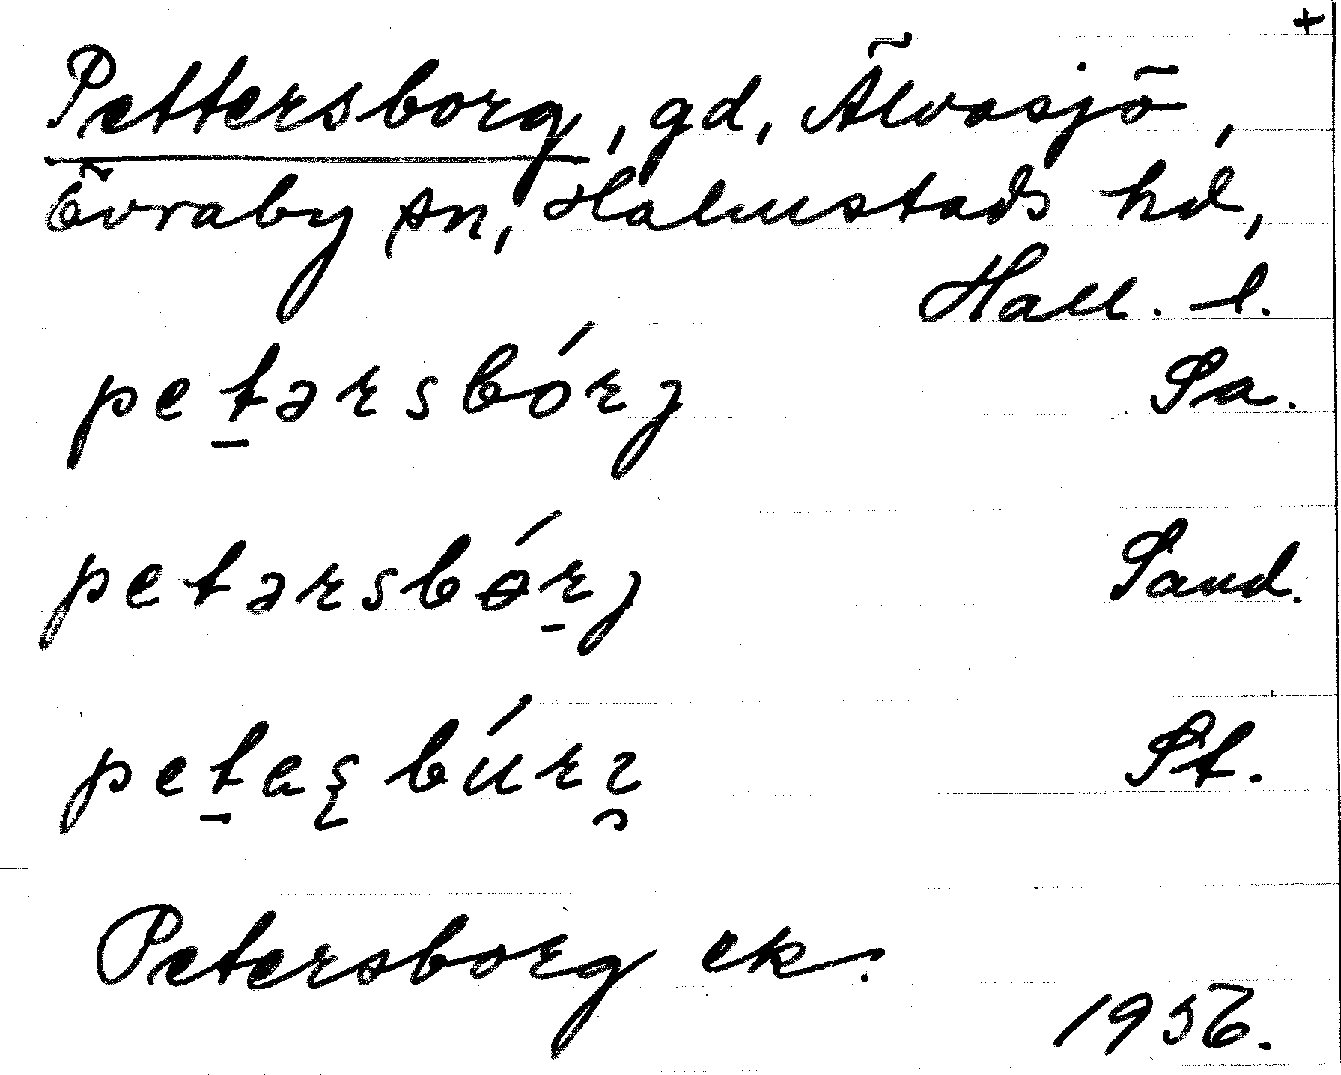 +
Pettersborg, gd, Älvasjö,
Övraby sn, Halmstads hd,
Hall. l.
petərsbórj Sa.
petərsbɵ́rj Sand.
petaʂbúrʒ St.
Petersborg ek.
1956.